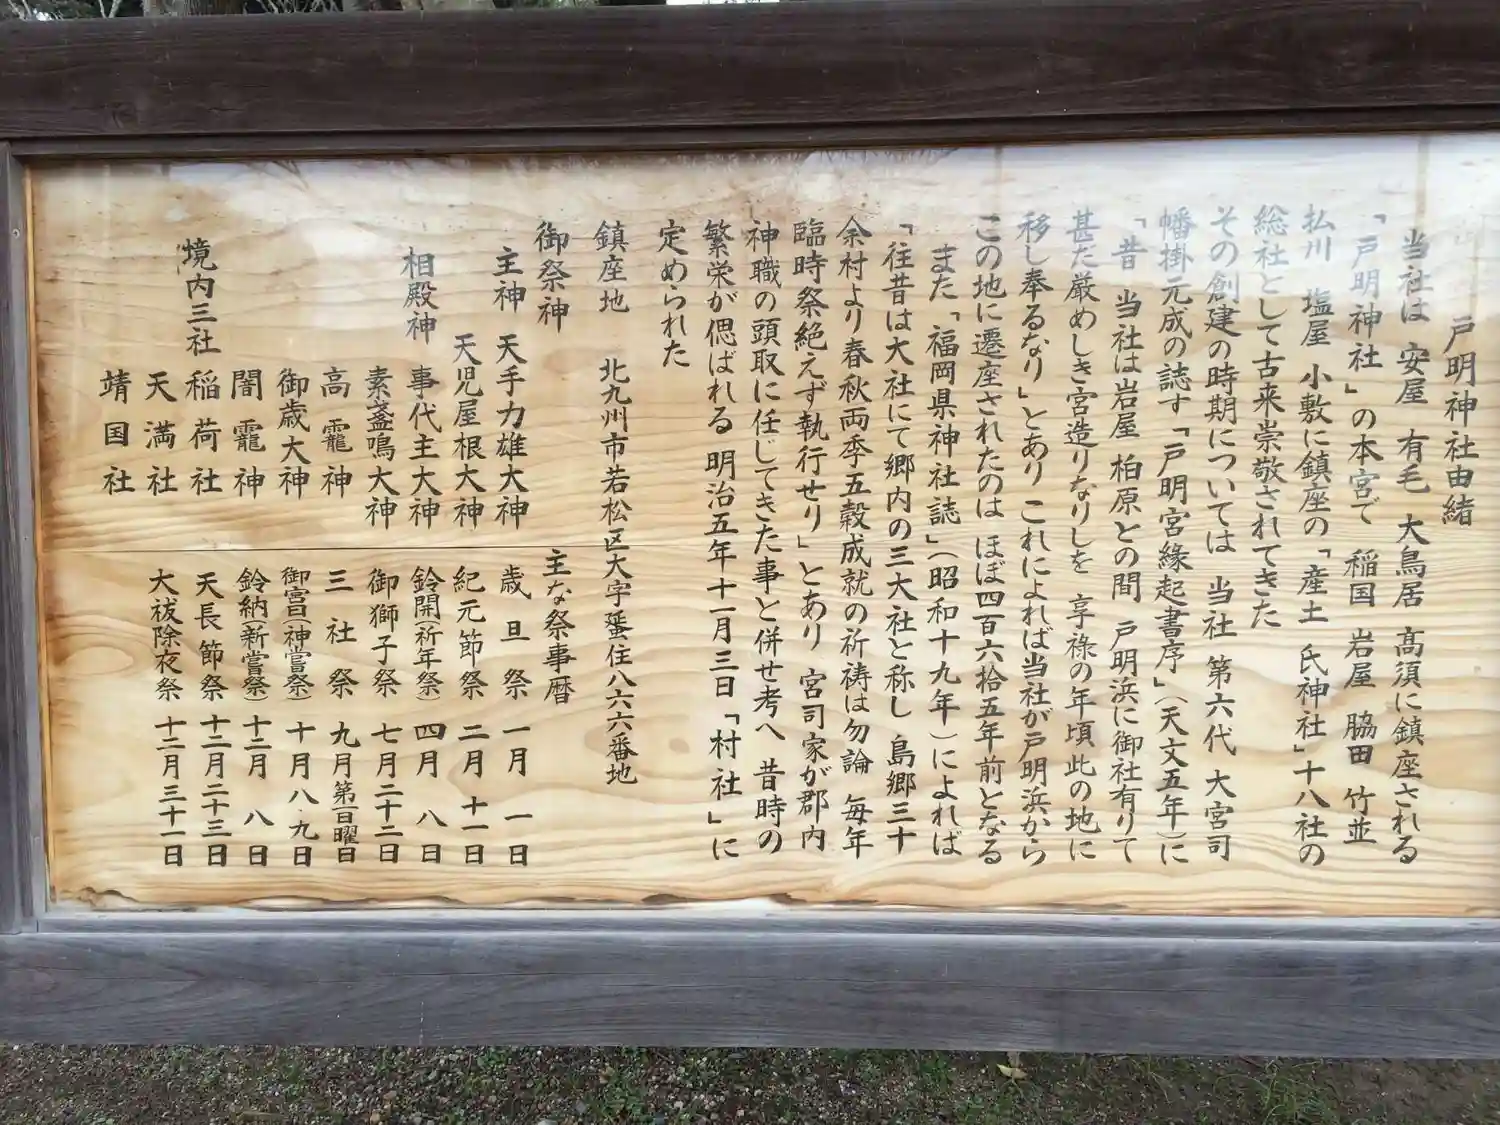 戸明神社由緒
当社は 安屋 有毛 大鳥居 高須に鎮座される
「戸明神社」の本宮で 稲国 岩屋 脇田 竹並
払川 塩屋 小敷に鎮座の「産土 氏神社」十八社の
総社として古来崇敬されてきた
その創建の時期については 当社 第六代 大宮司
幡掛元成の誌す「戸明宮縁起書序」(天文五年)に
「昔 当社は岩屋 柏原との間 戸明浜に御社有りて
甚だ厳めしき宮造りなりしを 享禄の年頃此の地に
移し奉るなり」とあり これによれば当社が戸明浜から
この地に遷座されたのは ほぼ四百六拾五年前となる
また「福岡県神社誌」(昭和十九年)によれば
「往昔は大社にて郷内の三大社と称し 島郷三十
余村より春秋両季五穀成就の祈祷は勿論 毎年
臨時祭絶えず執行せり」とあり 宮司家が郡内
神職の頭取に任じてきた事と併せ考へ 昔時の
繁栄が偲ばれる 明治五年十一月三日「村社」に
定められた
鎮座地 北九州市若松区大字蜑住八六六番地
御祭神
主神 天手力雄大神
天児屋根大神
相殿神 事代主大神
素盞鳴大神
高龗神
御歳大神
闇龗神
境内三社 稲荷社
天満社
靖国社
主な祭事暦
歳旦祭 一月一日
紀元節祭 二月十一日
鈴開(祈年祭) 四月八日
御獅子祭 七月二十二日
三社祭 九月第二日曜日
御宮日(神嘗祭) 十月八・九日
鈴納(新嘗祭) 十二月八日
天長節祭 十二月二十三日
大祓除夜祭 十二月三十一日